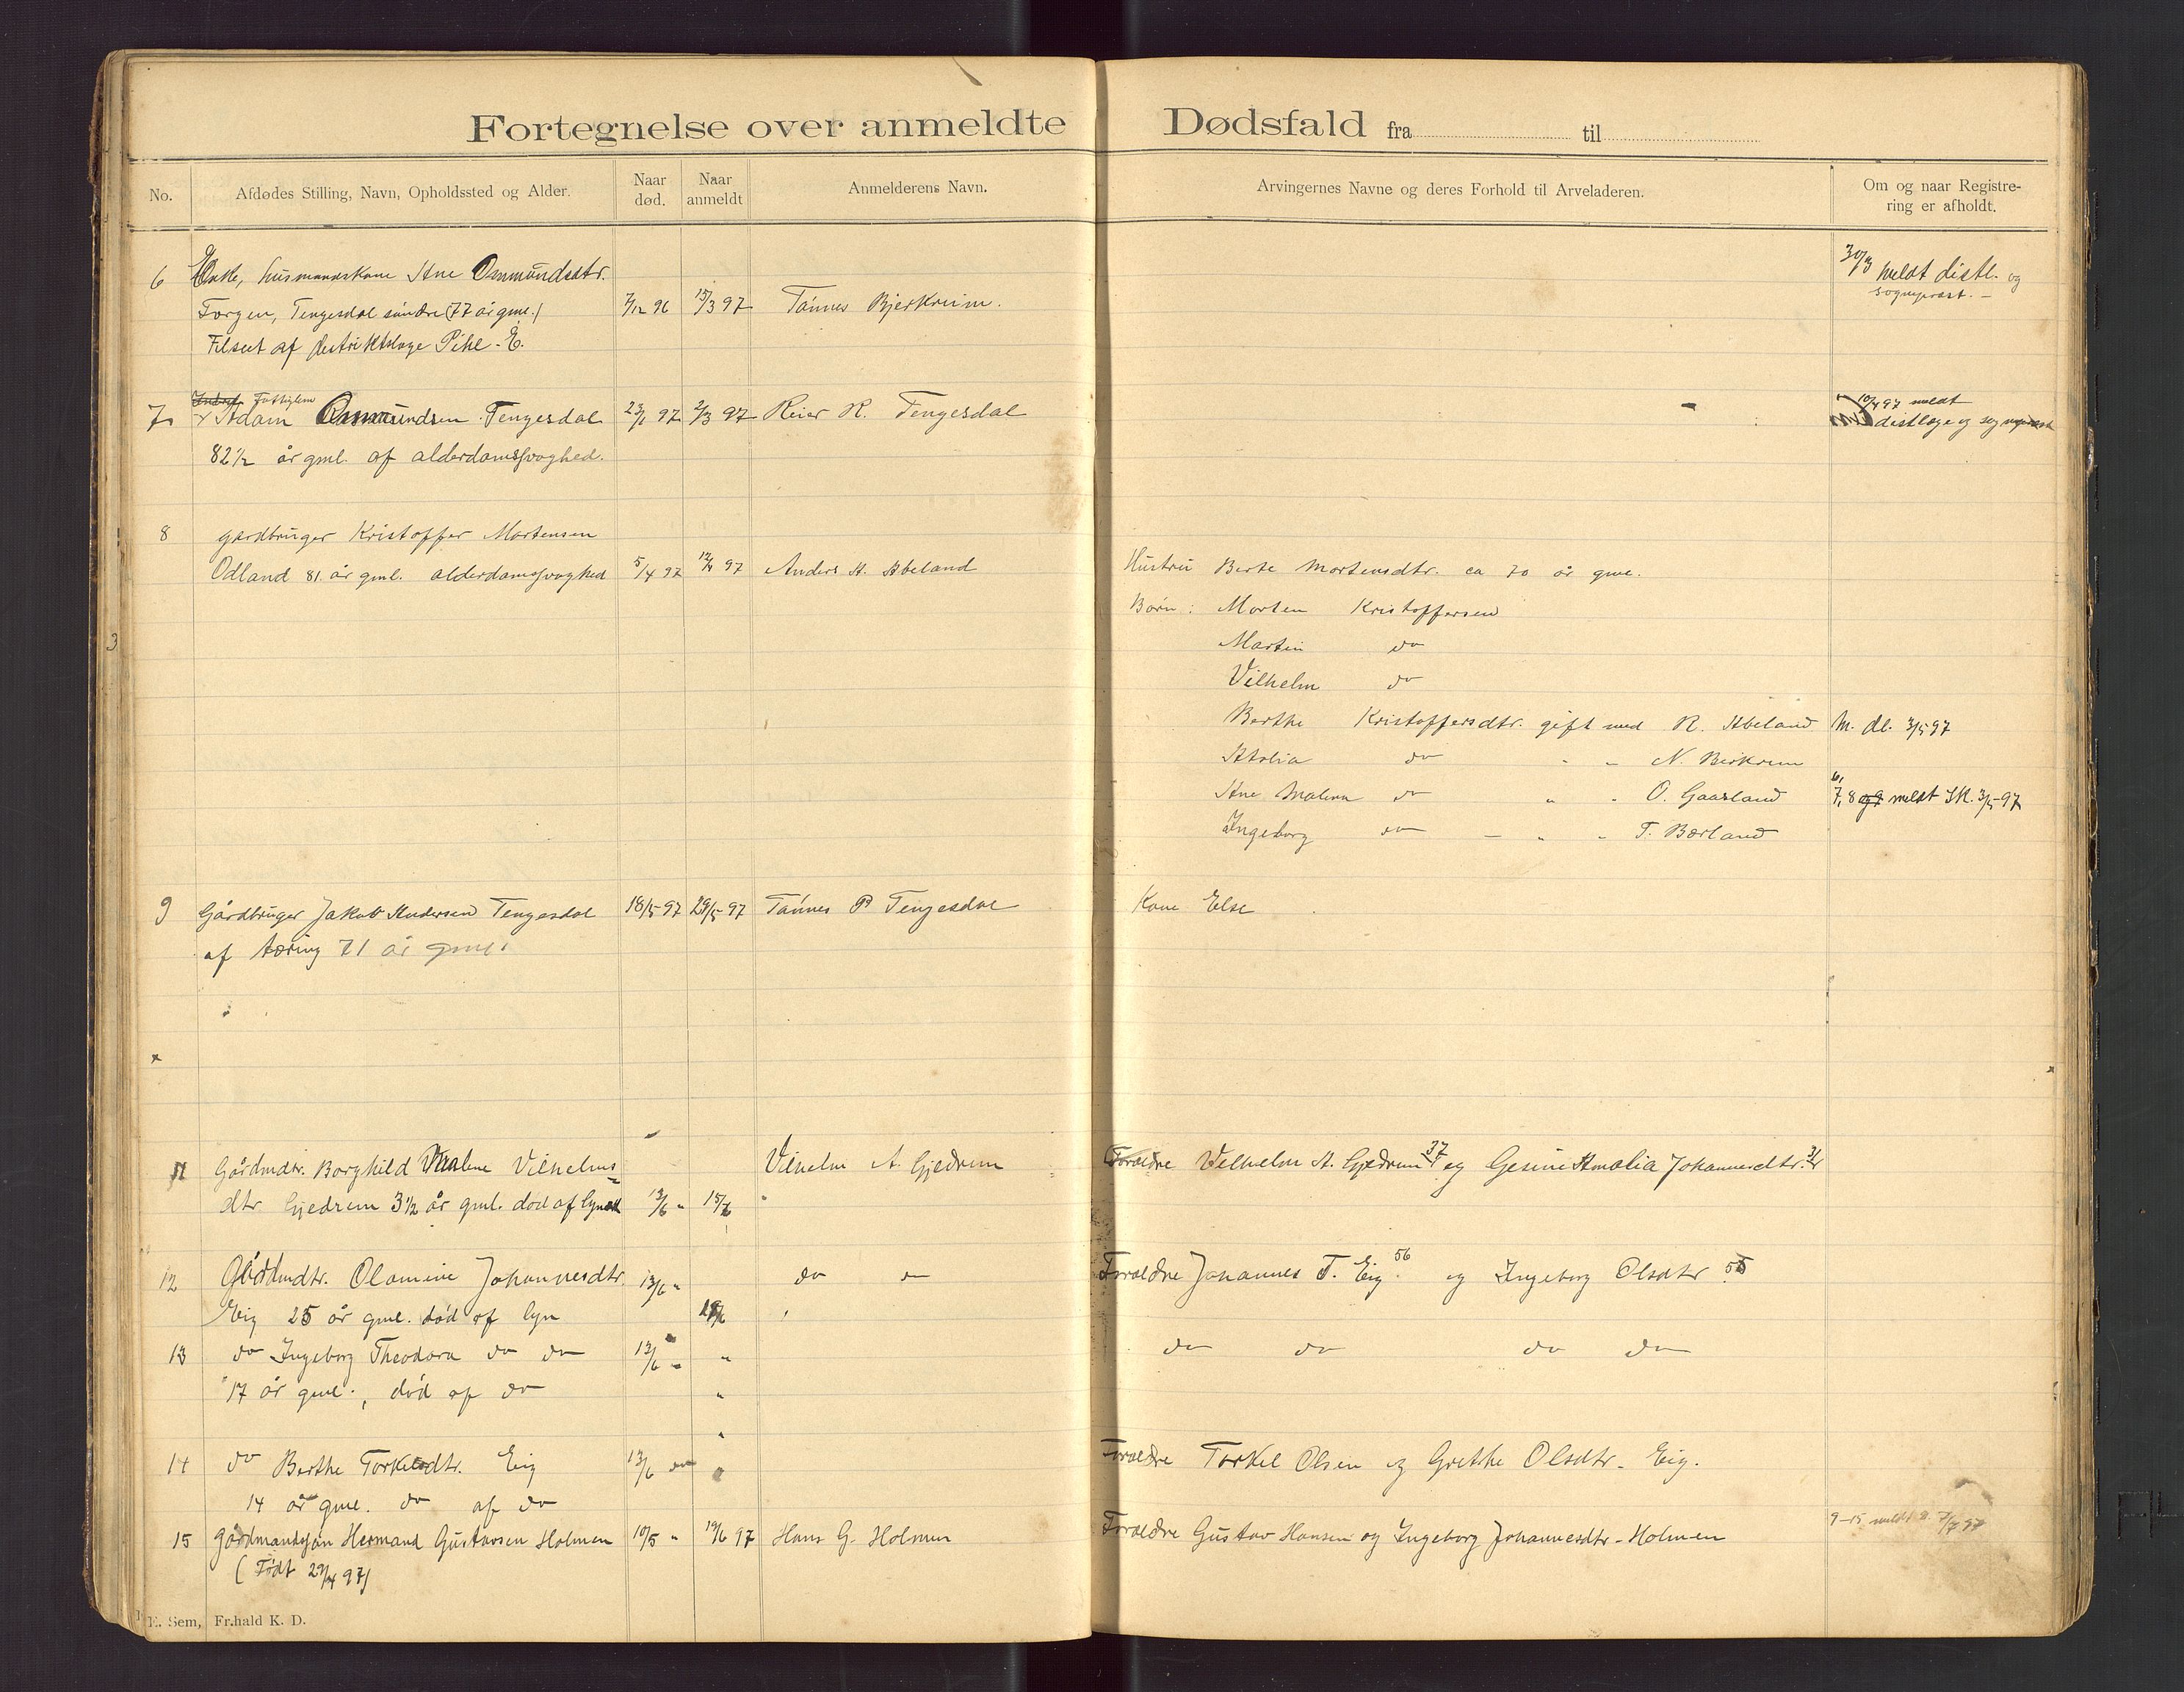 Fortegnelse over anmeldte Dødsfald fra til
No.
Afdødes Stilling, Navn, Opholdssted og Alder.
Naar død.
Naar anmeldt
Anmelderens Navn.
Arvingernes Navne og deres Forhold til Arveladeren.
Om og naar Registre-
ring er afholdt.
6 Enke, husmandskone Ane Ommundsdtr.
Torgen, Tengesdal søndre (77 år gml.) 7/12 96 15/3 97 Tønnes Bjerkreim.
Tilseet af distriktslæge Pihl - E.
30/3 meldt distl. og
sogneprest. -
7 Adam Osmundsen Tengesdal 23/1 97 2/3 97 Reier R. Tengesdal
82 1/2 år gml. af alderdomssvaghed.
10/4 97 meldt
distlæge og sogneprest
8 gardbruger Kristoffer Mortensen
Odland 81 år gml. alderdomssvaghed 5/4 97 12/4 97 Anders A. Abeland
Hustru Berte Mortensdtr. ca 70 år gml.
Børn: Morten Kristoffersen
Martin do
Vilhelm do
Berthe Kristoffersdtr. gift med R. Abeland M. dl. 3/5 97
Atolia do " - N. Birkrem
Ane Malena do " " O. Gaasland 6, 7, 8 og 9 meldt Sk. 3/5 97
Ingeborg do - " " T. Bærland
9 Gårdbruger Jakob Andersen Tengesdal 18/5 97 29/5 97 Tønnes P Tengesdal Kone Else
af tæring 71 år gml.
11 Gårdmdtr. Borghild Malene Vilhelms= Vilhelm A. Gjedrem Forældre Vilhelm A. Gjedrem 37 og Gesine Amalia Johannesdtr. 31
dtr Gjedrem 3 1/2 år gml. død af lyn 13/6 " 15/6
12 Gårdmdtr. Olamine Johannesdtr. 13/6 " do do Forældre Johannes T. Eig 56 og Ingeborg Olsdtr 55
Eig 25 år gml. død af lyn 19/6
13 do Ingeborg Theodora do do 13/6 " " do do do do
17 år gml., død af do "
14 do Berthe Torkelsdtr. Eig 13/6 do Forældre Torkel Olsen og Grethe Olsdtr. Eig.
14 år gml. do af do
15 gårdmandssøn Hermand Gustavsen Holmen 10/5 " 19/6 97 Hans G. Holmen Forældre Gustav Hansen og Ingeborg Johannesdtr - Holmen
9-15 meldt 7/7 97
(Født 29/4 97)
E. Sem, Fr.hald K. D.